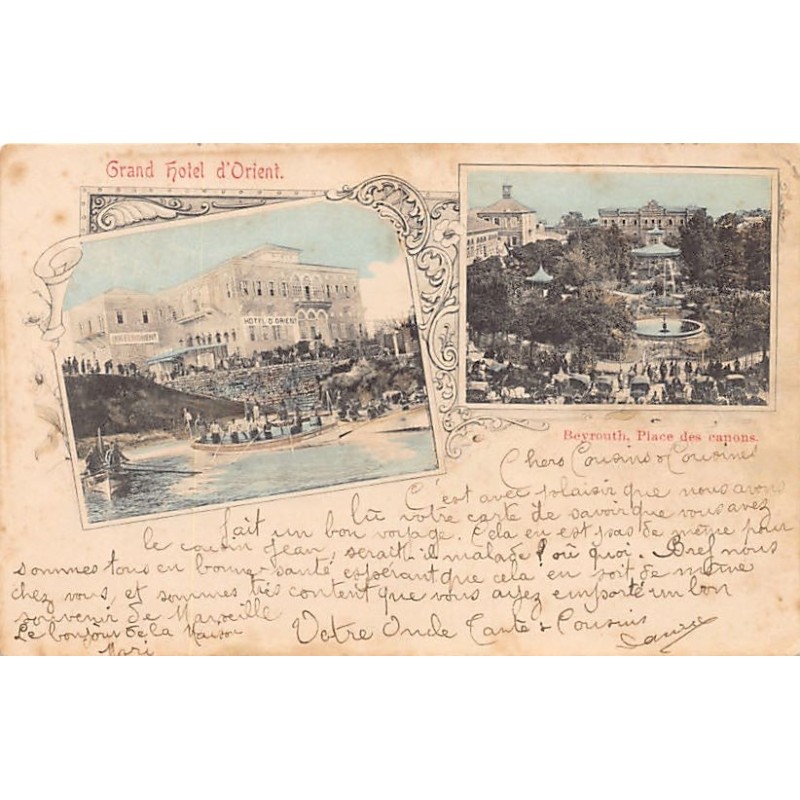 Grand Hotel d'Orient.
HOTEL D'ORIENT
Beyrouth, Place des canons.
Chers Cousins & Cousines
C'est avec plaisir que nous avons
lû votre carte de savoir que vous avez
fait un bon voyage. Cela en est pas de même pour
le cousin Jean, serait-il malade! où quoi. Bref nous
sommes tous en bonne santé espérant que cela en soit de même
chez vous, et sommes très content que vous ayez emporté un bon
souvenir de Marseille
Le bonjour de la Maison
Votre Oncle Tante & Cousins